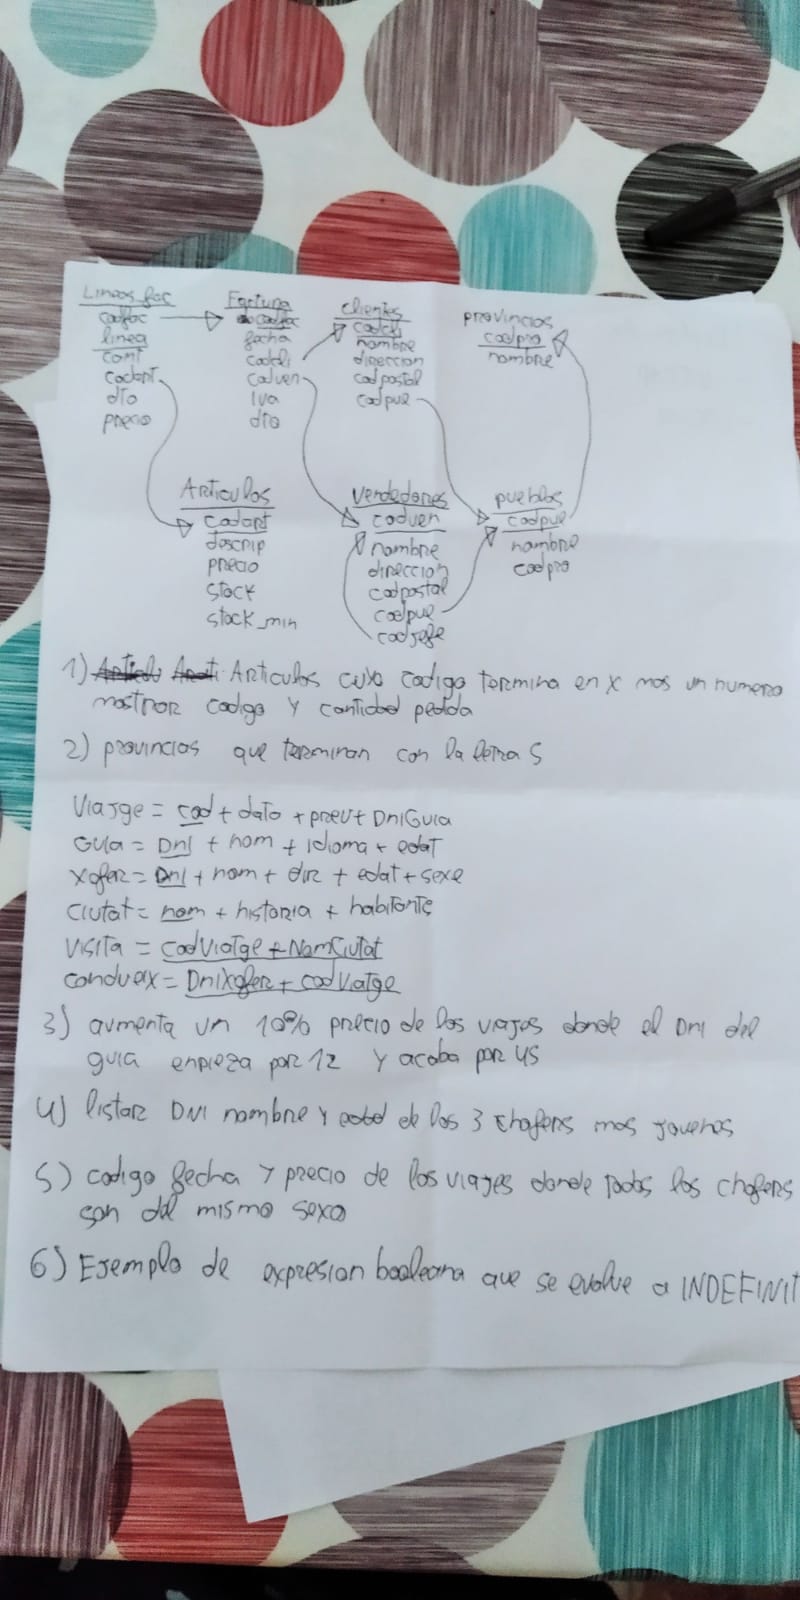 Lineas fac
codfac
linea
cant
codart
dto
precio
Factura
codfac
fecha
codcli
codven
iva
dto
clientes
codcli
nombre
direccion
codpostal
codpue
provincias
codpro
nombre
Articulos
codart
descrip
precio
stock
stock_min
Vendedores
codven
nombre
direccion
codpostal
codpue
codjefe
pueblos
codpue
nombre
codpro
1) Articulos cuyo codigo termina en X mas un numero
mostrar codigo y cantidad pedida
2) provincias que terminan con la letra S
Viatge = cod + data + preu + DniGuia
Guia = Dni + nom + idioma + edat
Xofer = Dni + nom + dir + edat + sexe
Ciutat = nom + historia + habitants
Visita = codViatge + NomCiutat
condueix = DniXofer + codViatge
3) aumenta un 10% precio de los viajes donde el DNI del
guia empieza por 12 y acaba por 45
4) listar DNI nombre y edad de los 3 chofers mas jovenes
5) codigo fecha y precio de los viajes donde todos los chofers
son del mismo sexo
6) Ejemplo de expresion booleana que se evalue a INDEFINIT